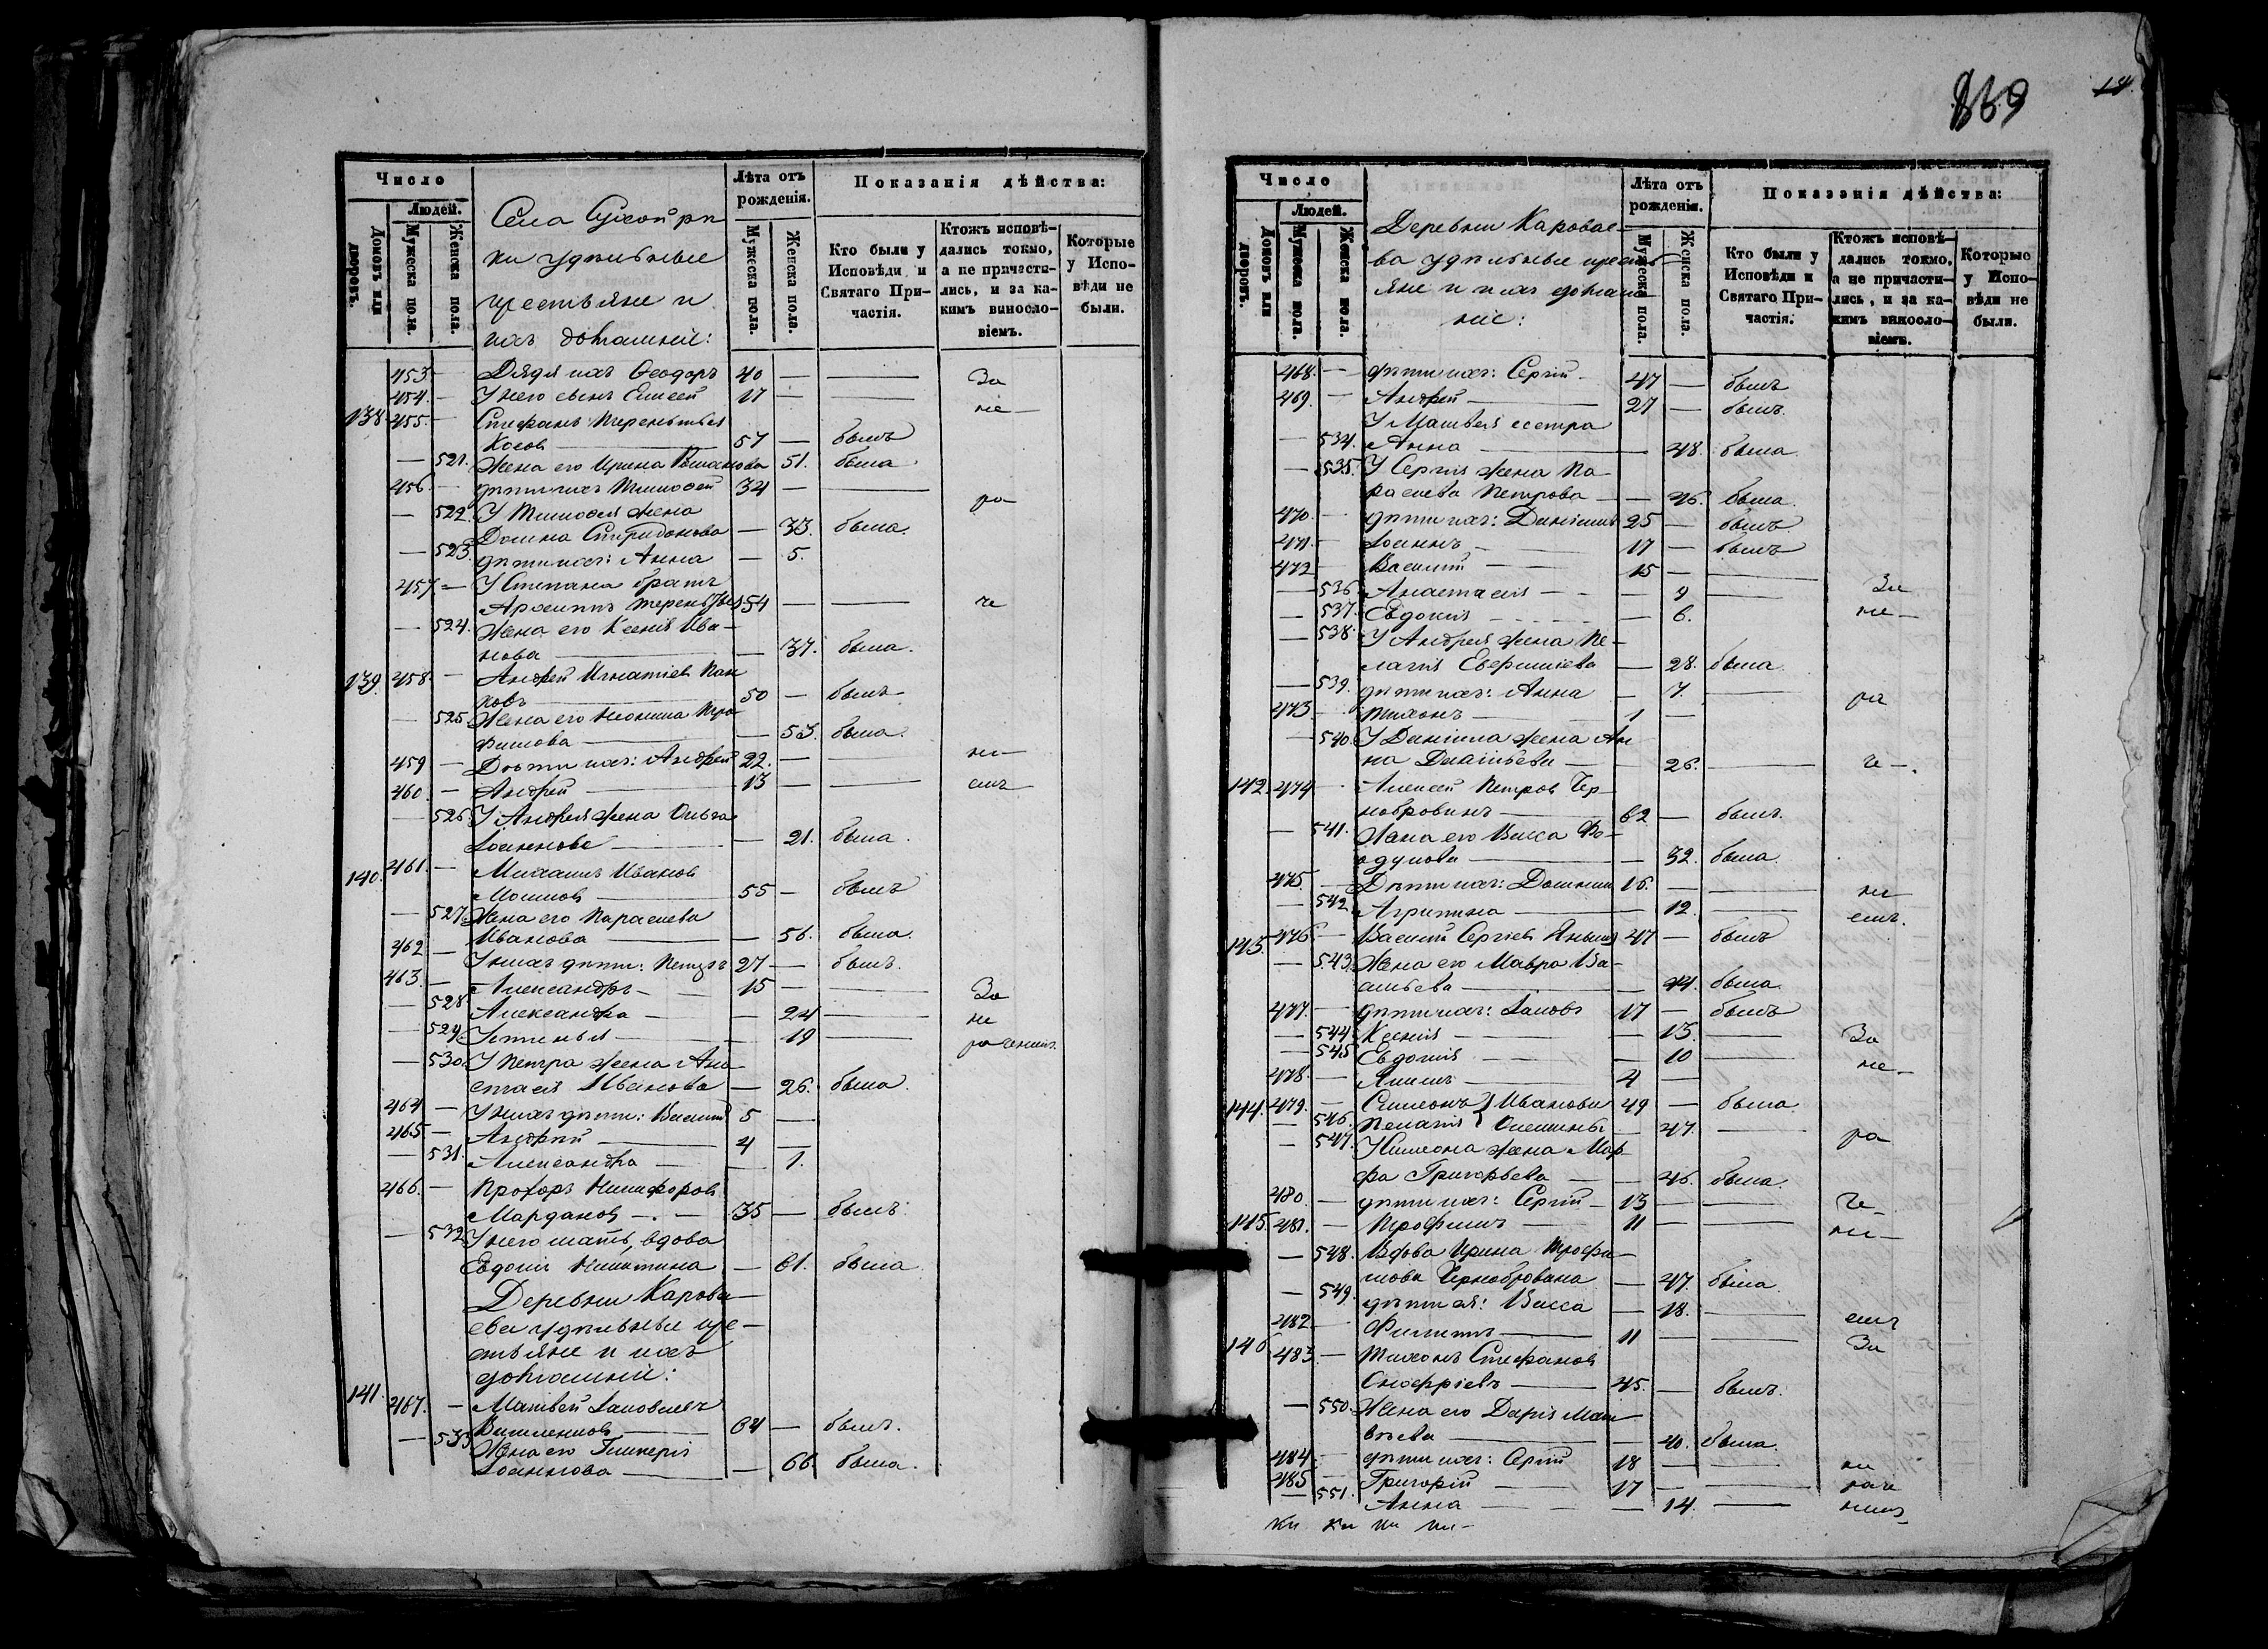 Число
Людей.
Домовъ или дворовъ.
Мужеска пола.
Женска пола.
Села Сухой рѣ
ки удѣльные
крестьяне и
ихъ домашніе:
Лѣта отъ рожденія.
Мужеска пола.
Женска пола.
Показанія дѣйства:
Кто были у Исповѣди и Святаго Причастія.
Ктожъ исповѣдались токмо, а не причастились, и за какимъ винословіемъ.
Которые у Исповѣди не были.
453 — Дядя ихъ Ѳеодоръ 40 — — За
454 — У него сынъ Елисей 17 — —
138 455 — Стефанъ Терентьевъ не
57 — былъ
— 521. Жена его Ирина 51. была
456 — дѣти ихъ Тимоѳей 34 — —
— 522. У Тимоѳея жена ра
Домна Спиридонова — 33. была.
— 523. дѣти ихъ: Анна — 5.
457 — У Стефана братъ
Архиппъ Терентьев 54 — — че
— 524. Жена его Ксенія Ива-
нова — 37. была.
139 458 — Андрей Игнатіев Пан
ковъ 50 — былъ
— 525 Жена его Неонила Тро
фимова — 53. была.
459 — Дѣти ихъ: Андрей 22. — — ні
460 — Андрей 13 — — емъ
— 526 У Андрея жена Ольга
Іоаннова — 21. была.
140. 461. — Михаилъ Иванов
55 — былъ
— 527 Жена его Параскева
Иванова — 56. была.
462 — У нихъ дѣти: Петръ 27 — былъ.
463 — Александръ 15 — — За
— 528 Александра — 24 — не
— 529 Устинья — 19 — раченіем.
— 530 У Петра жена Ана
стасія Иванова — 26. была.
464 — У нихъ дѣти: Василій 5 —
465 — Андрей 4 —
— 531. Александра — 1.
466. — Прохоръ Никифоровъ
Марданов 35 — былъ
— 532 У него мать, вдова
Евдокія Никитина — 61. была
Деревни Карова
ева удѣльные кре-
стьяне и ихъ
домашніе:
141. 467. — Матвей Іаковлевъ
64 — былъ.
— 533 Жена его Гликерія
Іоаннова — 66. была.
839
14.
Число
Людей.
Домовъ или дворовъ.
Мужеска пола.
Женска пола.
Деревни Каровае-
ва удѣльные кресть
яне и ихъ домаш-
ніе:
Лѣта отъ рожденія.
Мужеска пола.
Женска пола.
Показанія дѣйства:
Кто были у Исповѣди и Святаго Причастія.
Ктожъ исповѣдались токмо, а не причастились, и за какимъ винословіемъ.
Которые у Исповѣди не были.
468. — дѣти ихъ: Сергій 47 — былъ
469. — Андрей 27 — былъ.
У Матвея сестра
— 534. Анна — 48. была.
— 535. У Сергія жена Па-
раскева Петрова — 46. была.
470 — дѣти ихъ: Даніилъ 25 — былъ
471 — Іоаннъ 17 — былъ
472 Василій 15 — —
— 536. Анастасія — 9 — За
— 537. Евдокія — 6. не —
— 538. У Андрея жена Пе-
лагія — 28. была
— 539. дѣти ихъ: Анна — 7. — ра
473 — Тихонъ 1 —
— 540. У Даніила жена Ан
на — 26. — че —
142. 474 — Алексей Петров Чер
нобровинъ 62 — былъ.
— 541. Жена его Васса Ѳе-
одулова — 52. была.
475 — Дѣти ихъ: 16. — — ні
— 542 Агрипина — 12. — емъ.
143. 476 — Василій Сергіев 47 — былъ
— 543 Жена его Мавра Ва-
сильева — 44. была
477. — дѣти ихъ: Іаковъ 17 — былъ
— 544 Ксенія — 13. — За
— 545 Евдокія — 10 — не —
478 — 4 —
144. 479. — Симеонъ } Ивановы 49 — была.
— 546. Пелагія } — 47. —
— 547. У Симеона жена Мар ра
фа Григорьева — 46. была.
480 — дѣти ихъ: Сергій 13 — — че
145 481. — Трофимъ 11 — — ні —
— 548. Вдова Ирина Трофи-
мова Чернобровина — 47. была
— 549. дѣти ея: Васса — 18. — емъ
482 — Филиппъ 11 — — За
146 483. — Тихонъ Стефанов
45. — былъ.
— 550. Жена его Дарія Мат
вѣева — 40. была.
484 — дѣти ихъ: Сергій 18 — — не
485 — Григорій 17 — — раче
— 551. Анна — 14. — ніем